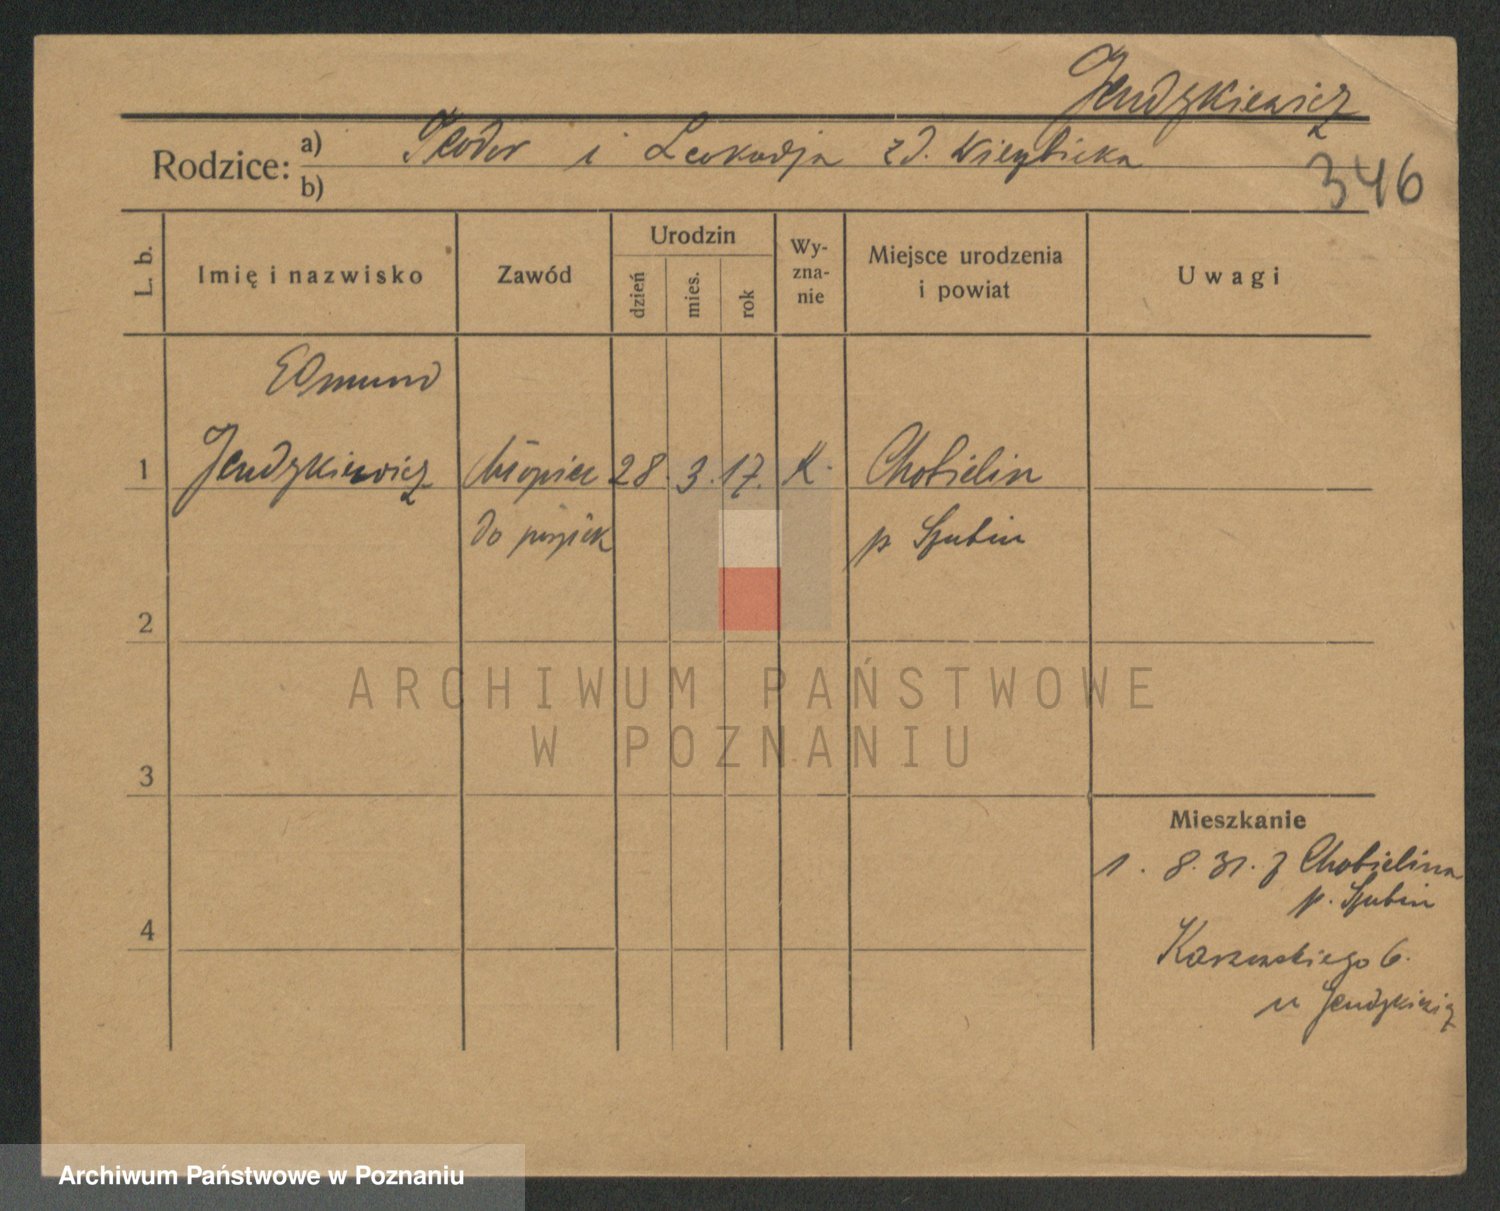 Jendzkiewicz
Rodzice: a) Teodor i Leokadja z d. Wierzbicka
b)
346
L. b. Imię i nazwisko Zawód Urodzin dzień mies. rok Wy-zna-nie Miejsce urodzenia i powiat Uwagi
Edmund
1 Jendzkiewicz chłopiec 28. 3. 17. K. Chobielin
do posyłek p Szubin
2
ARCHIWUM PAŃSTWOWE
W POZNANIU
3
Mieszkanie
1. 8. 31. z Chobielina
p. Szubin
4
6.
u
Archiwum Państwowe w Poznaniu